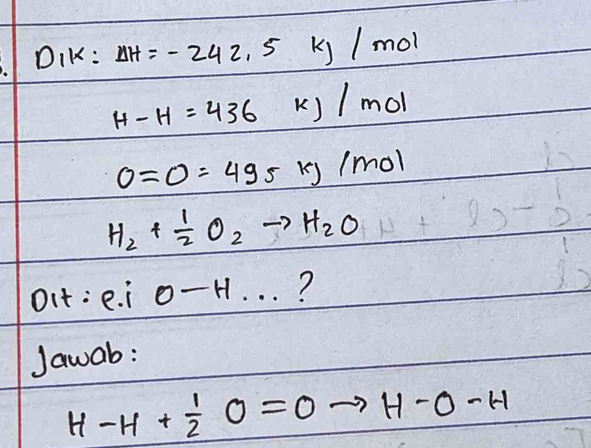 Dik: ΔH = - 242,5 kJ / mol
H - H = 436 kJ / mol
O = O = 495 kJ / mol
H₂ + ½ O₂ → H₂O
Dit: e.i O - H ... ?
Jawab:
H - H + ½ O = O → H - O - H